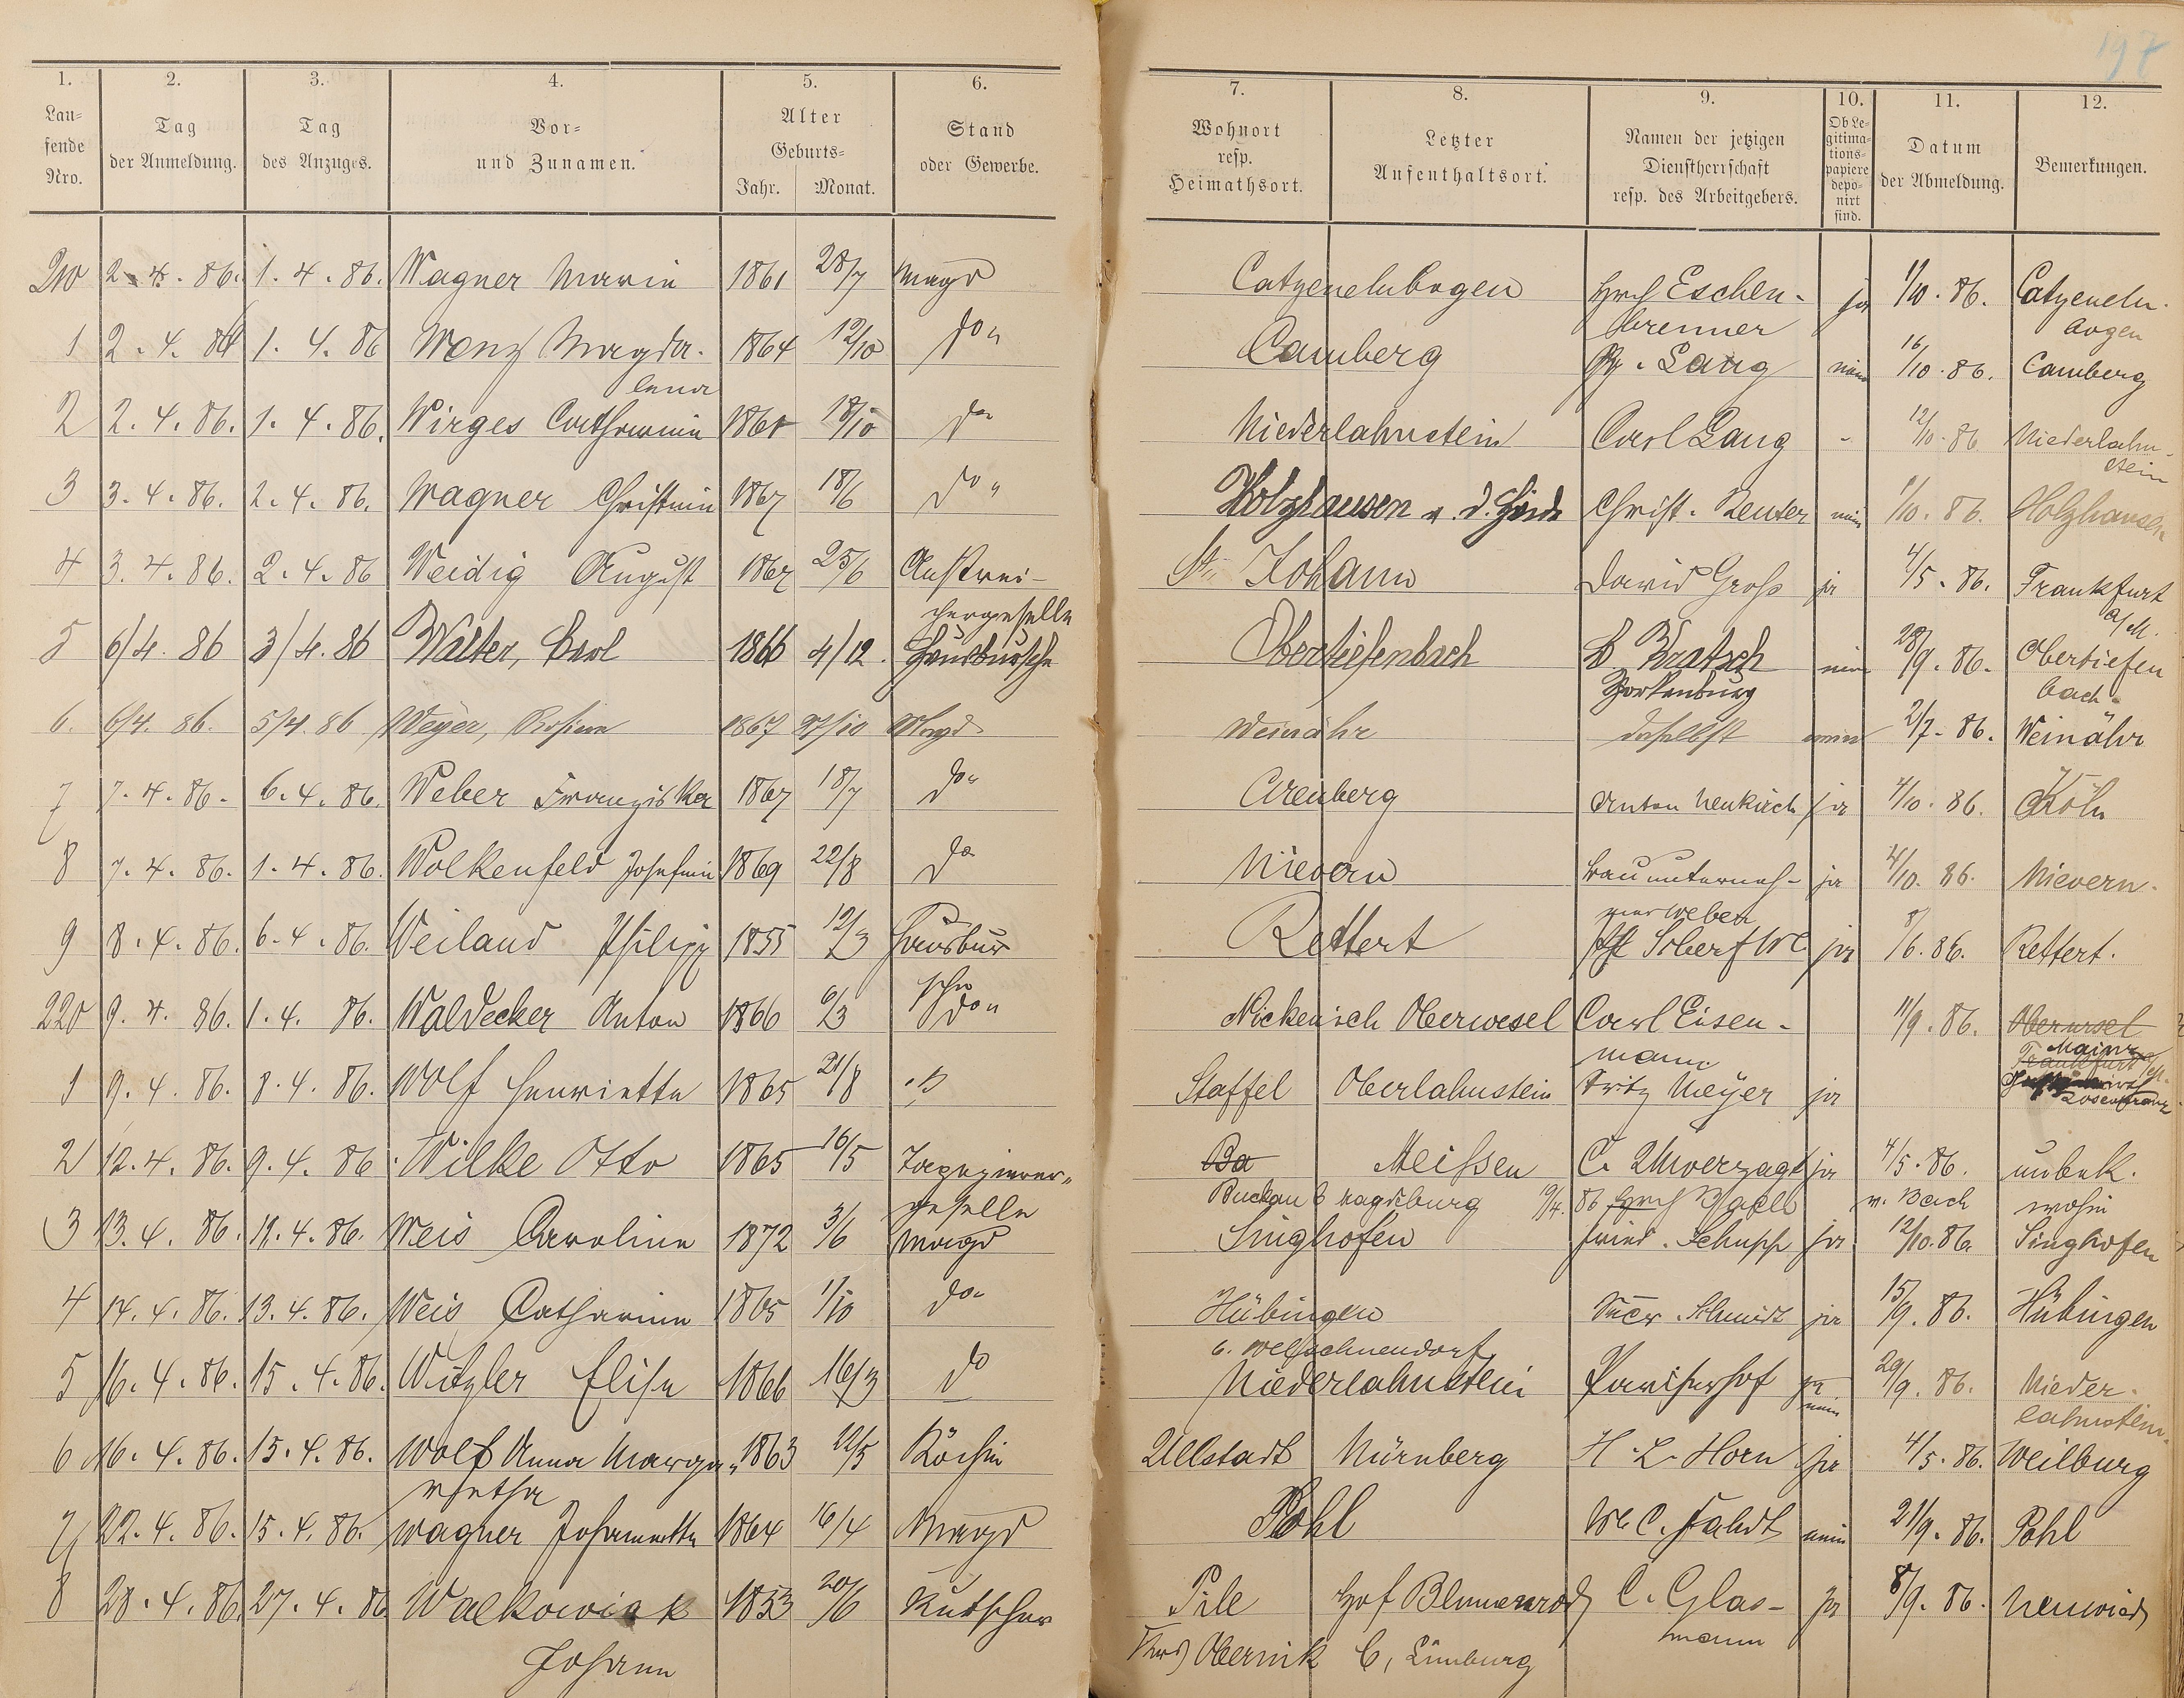 197
1. 2. 3. 4. 5. 6. 7. 8. 9. 10. 11. 12.
Lau-
fende
Nro.
Tag
der Anmeldung.
Tag
des Anzuges.
Vor-
und Zunamen.
Alter
Geburts-
Jahr. Monat.
Stand
oder Gewerbe.
Wohnort
resp.
Heimathsort.
Letzter
Aufenthaltsort.
Namen der jetzigen
Dienstherrschaft
resp. des Arbeitgebers.
Ob Le-
gitima-
tions-
papiere
depo-
nirt
sind.
Datum
der Abmeldung.
Bemerkungen.
210 2. 4. 86. 1. 4. 86. Wagner Marie 1861 28/7 Magd Catzenelnbogen Eschen- ja 1/10. 86. Catzeneln-
brenner bogen
1 2. 4. 86 1. 4. 86 Magda- 1864 12/10 do Camberg Lang nein 16/10. 86. Camberg
lena
2 2. 4. 86. 1. 4. 86. Wirges Catharine 18/10 do Niederlahnstein Carl Lang - 12/10. 86 Niederlahn-
stein
3 3. 4. 86. 2. 4. 86. Wagner Christine 1867 18/6 do Holzhausen a. d. Haide Christ. Reuter nein 1/10. 86. Holzhausen
4 3. 4. 86. 2. 4. 86 Weidig August 1867 25/6 Anstrei- St. Johann David Groß ja 4/5. 86. Frankfurt
chergeselle a/M.
5 6/4. 86 3/4. 86 Walter, Carl 1866 4/12. Hausbursche Obertiefenbach Bratsch nein 28/9. 86. Obertiefen
bach
6. 6/4. 86. 5/4. 86 Weyer, Rosina 1867 27/10 Magd Weinähr daselbst nein 2/7. 86. Weinähr
7 7. 4. 86. 6. 4. 86. Weber Franziska 1867 18/7 do Arenberg Anton Neukirch ja 4/10. 86. Köln
8 7. 4. 86. 1. 4. 86. Wolkenfeld Josefine 1869 22/8 do Nievern Bauunterneh- ja 4/10. 86. Nievern.
mer Weber
9 8. 4. 86. 6. 4. 86. Weiland Philipp 1855 12/3 Hausbur Rettert Scherf We ja 8/6. 86. Rettert.
sche
220 9. 4. 86. 1. 4. 86. Waldecker Anton 1866 6/3 do Nickenich Oberwesel Carl Eisen- 11/9. 86. Oberursel
mann Mainz
Frankfurt a/M.
1 9. 4. 86. 8. 4. 86. Wolf Henriette 1865 21/8 Staffel Oberlahnstein Fritz Meyer ja
2 12. 4. 86. 9. 4. 86. Wilke Otto 1865 16/5 Tapezierer- Ba Meißen C. Unverzagt ja 4/5. 86. unbek.
geselle Buckau b Magdeburg 19/4. 86 v. Bach wohin
3 13. 4. 86. 11. 4. 86. Weis Caroline 1872 3/6 Magd Singhofen Schupp ja 12/10. 86. Singhofen
4 14. 4. 86. 13. 4. 86. Weis Catharine 1865 1/10 do Hübingen Schmidt ja 15/9. 86. Hübingen
b. Welschneudorf
5 16. 4. 86. 15. 4. 86. Witzler Elise 1866 16/3 do Niederlahnstein Pariserhof ja 29/9. 86. Nieder-
nein lahnstein.
6 16. 4. 86. 15. 4. 86. Wolf Anna Marga- 1863 Köchin Ullstadt Nürnberg H. L. Horn ja 4/5. 86. Weilburg
retha
7 22. 4. 86. 15. 4. 86. Wagner Johannette 1864 16/4 Magd Pohl We C. Fahdt nein 21/9. 86. Pohl
8 28. 4. 86. 27. 4. 86 Walkowiak 1853 20/6 Kutscher Pile Hof Blumenrod C. Glas- ja 8/9. 86. Neuwied
Johann Obernik b, Limburg mann